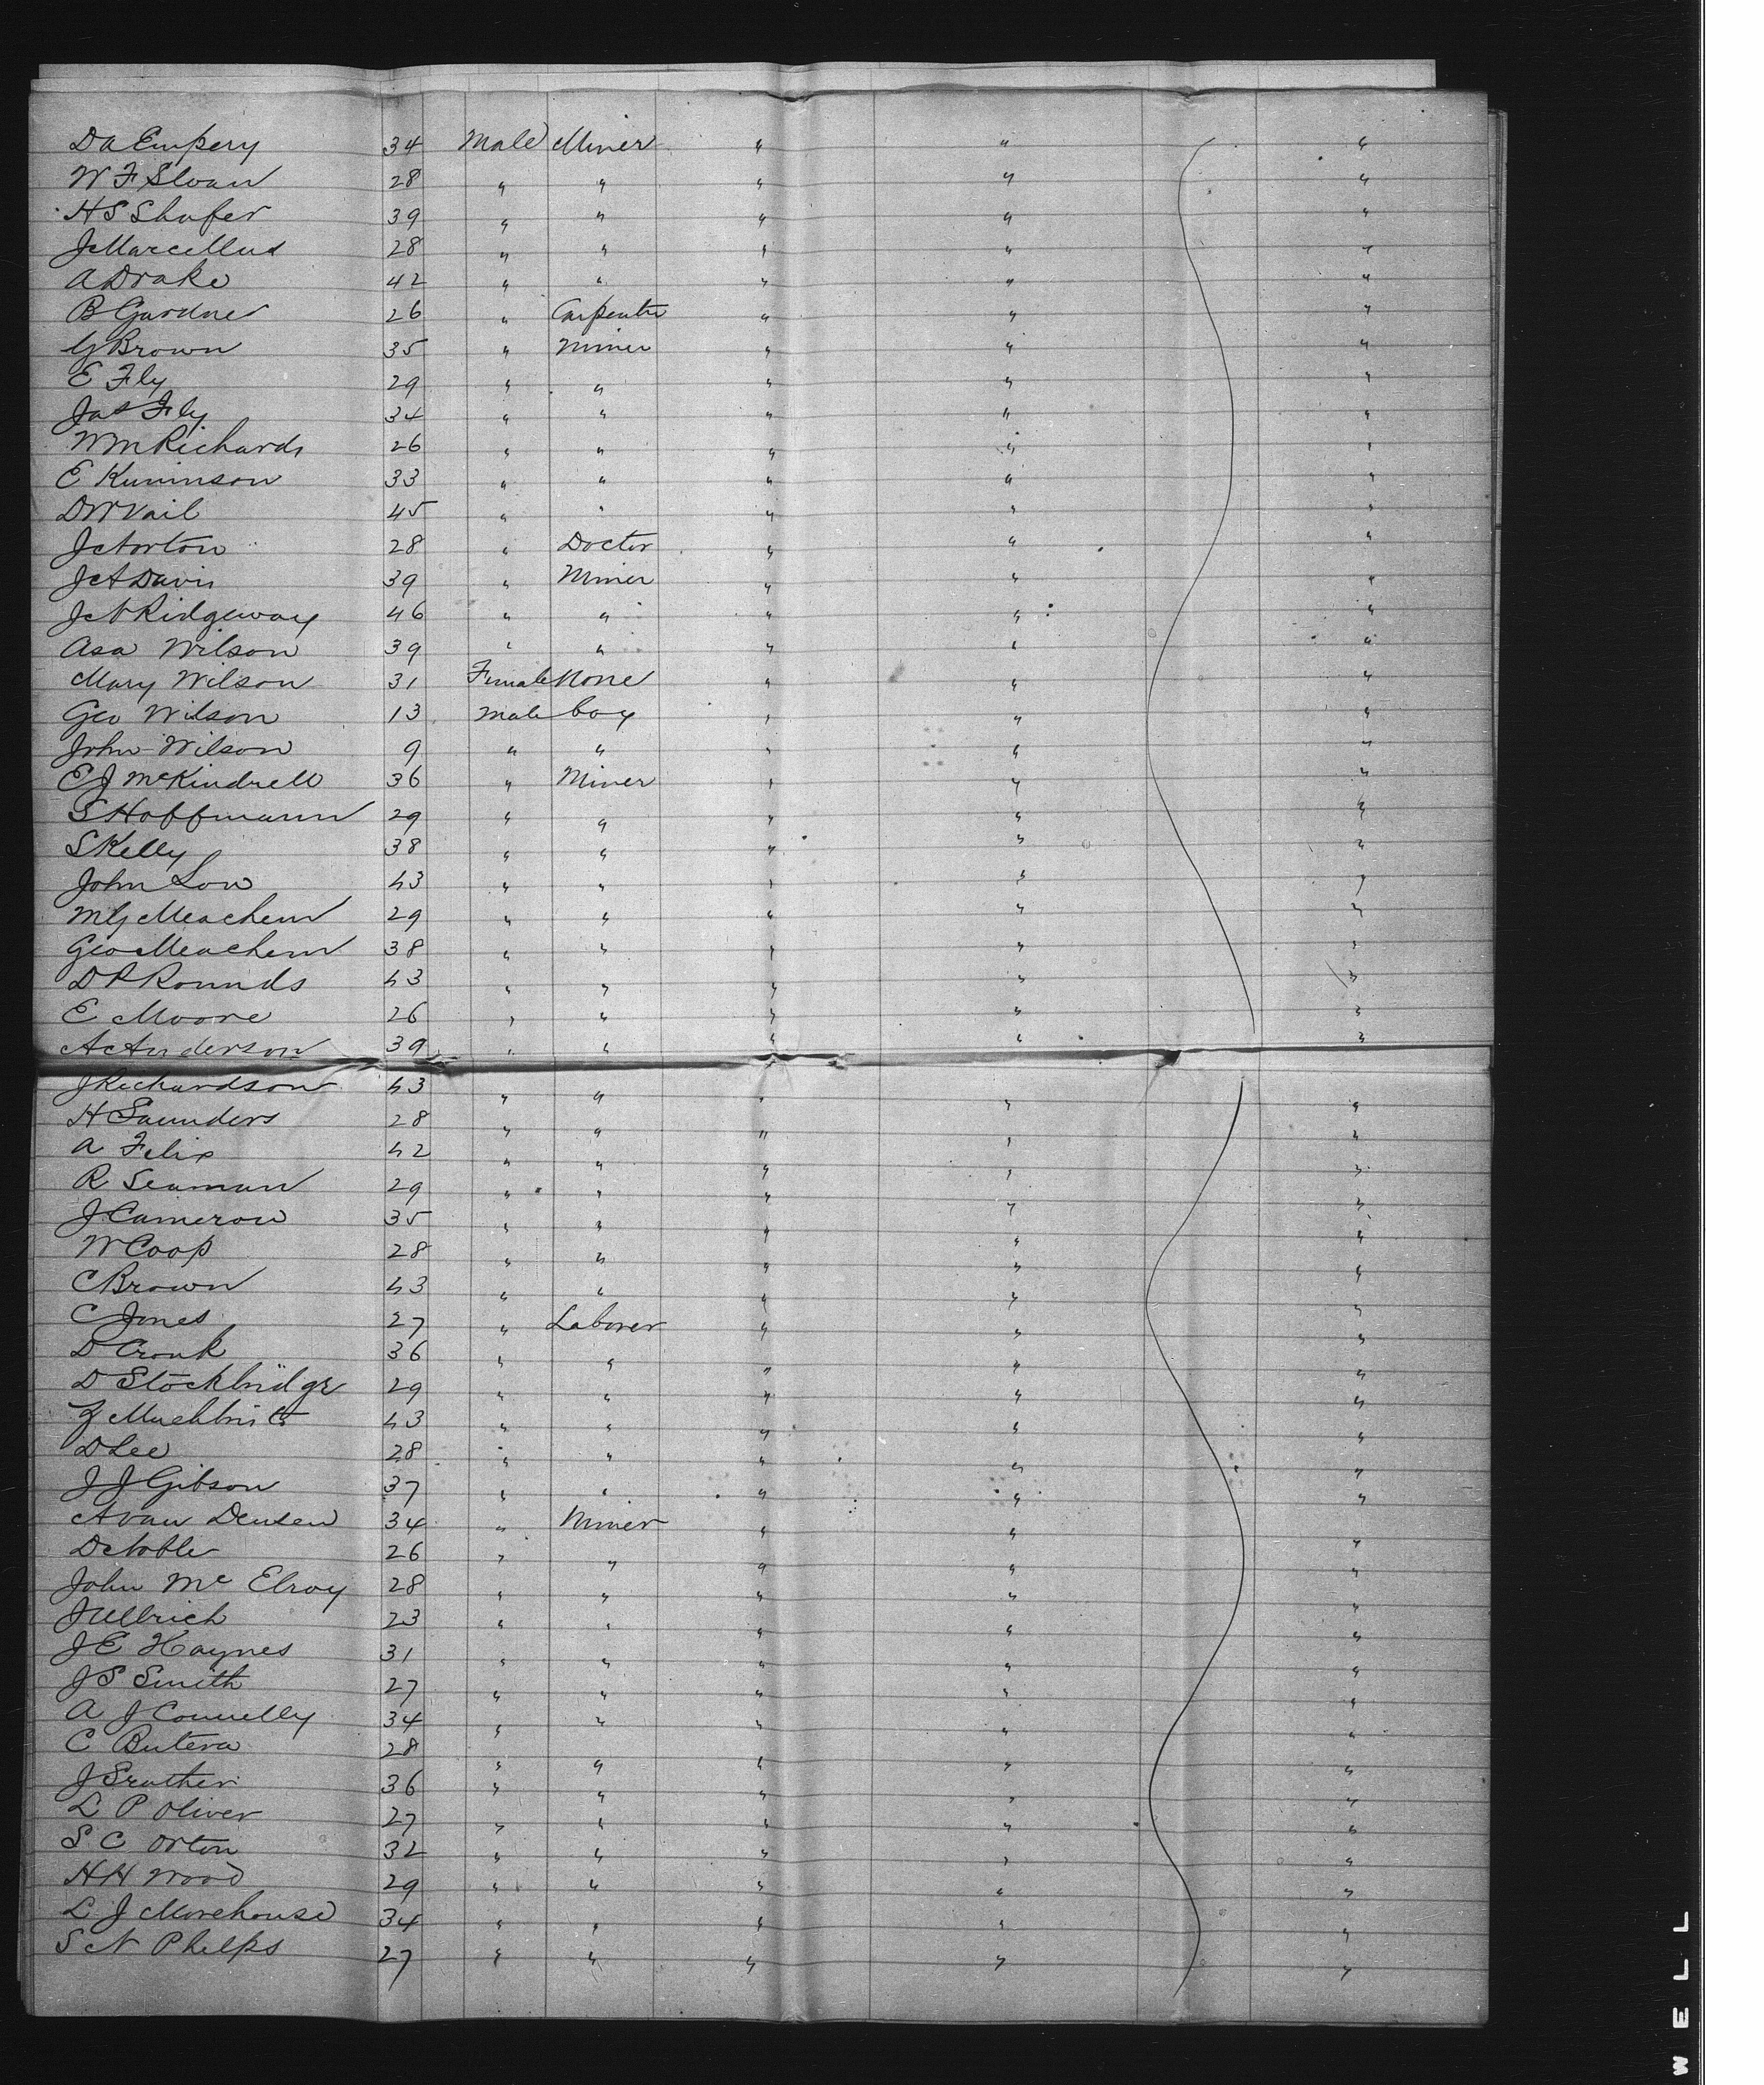 D A Empery 34 Male Miner " " "
W F Sloan 28 " " " " "
H S Shafer 39 " " " " "
J Marcellus 28 " " " " "
A Drake 42 " " " " "
B Gardner 26 " Carpenter " " "
G Brown 35 " Miner " " "
E Fly 29 " " " " "
Jas Fly 34 " " " " "
Wm Richards 26 " " " " "
E Kuninson 33 " " " " "
D W Vail 45 " " " " "
J Norton 28 " Doctor " " "
J A Davis 39 " Miner " " "
J N Ridgeway 46 " " " " "
Asa Wilson 39 " " " " "
Mary Wilson 31 Female None " " "
Geo Wilson 13 Male boy " " "
John Wilson 9 " " " " "
E J McKindrell 36 " Miner " " "
S Hoffmann 29 " " " " "
S Kelly 38 " " " " "
John Low 43 " " " " "
M G Meachem 29 " " " " "
Geo Meachem 38 " " " " "
D R Rounds 43 " " " " "
E Moore 26 " " " " "
A Anderson 39 " " " " "
J Richardson 43 " " " " "
H Saunders 28 " " " " "
A Felix 42 " " " " "
R Seaman 29 " " " " "
J Cameron 35 " " " " "
W Coop 28 " " " " "
C Brown 43 " " " " "
C Jones 27 " Laborer " " "
D Cronk 36 " " " " "
D Stockbridge 29 " " " " "
43 " " " " "
D Lee 28 " " " " "
J J Gibson 37 " " " " "
A Van Deusen 34 " Miner " " "
D Noble 26 " " " " "
John Mc Elroy 28 " " " " "
J Ullrich 23 " " " " "
J E Haynes 31 " " " " "
J S Smith 27 " " " " "
A J Connelly 34 " " " " "
C Butera 28 " " " " "
J 36 " " " " "
L P Oliver 27 " " " " "
S C Orton 32 " " " " "
H H Wood 29 " " " " "
L J Morehouse 34 " " " " "
S N Phelps 27 " " " " "
WELL